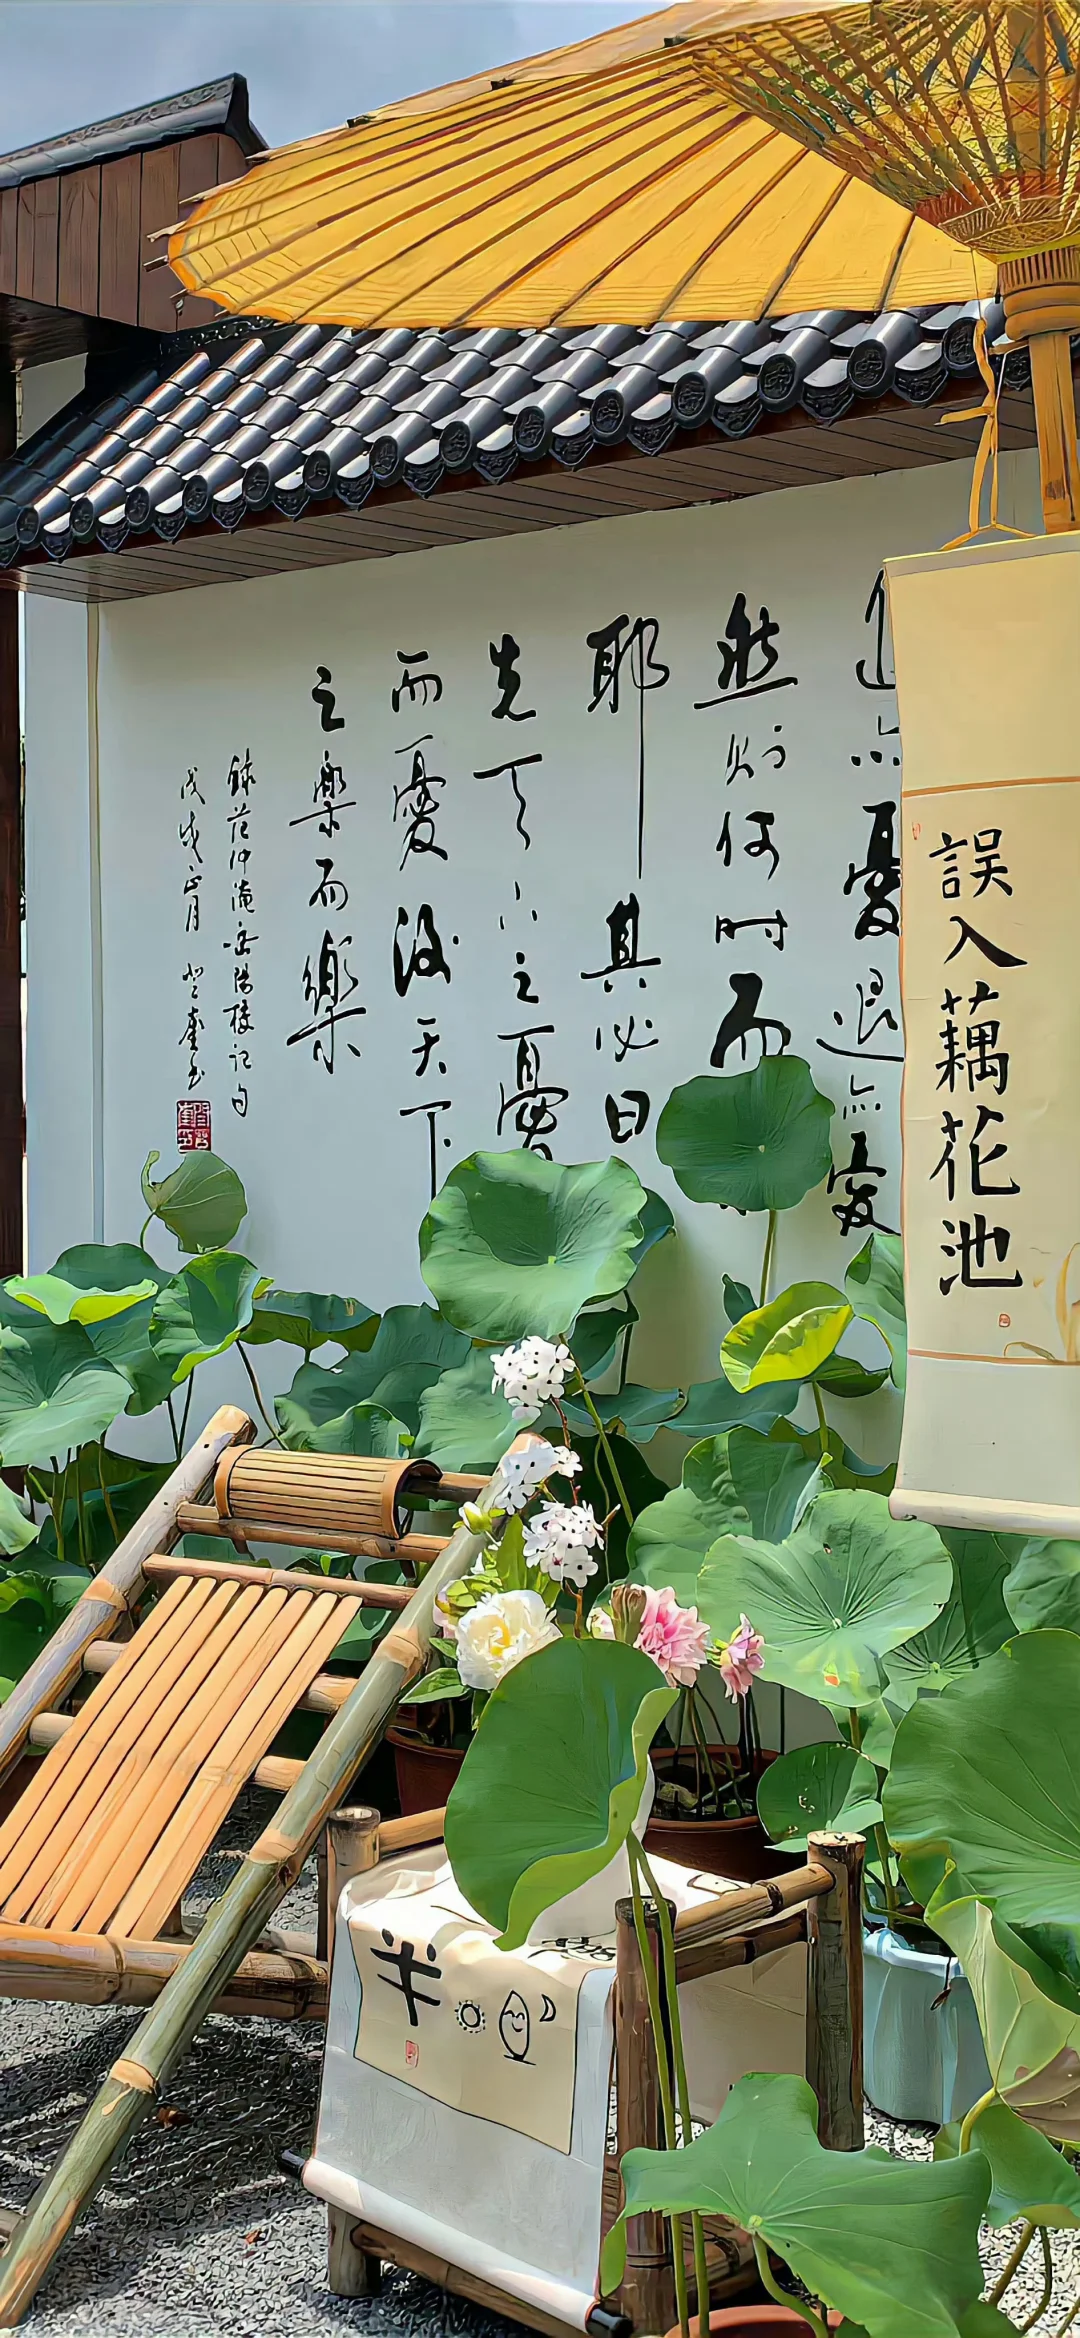 誤入藕花池
進亦憂退亦憂
然則何时而
耶其必曰
先天下之憂
而憂後天下
之樂而樂
錄范仲淹岳陽樓記句
戊戌正月
半